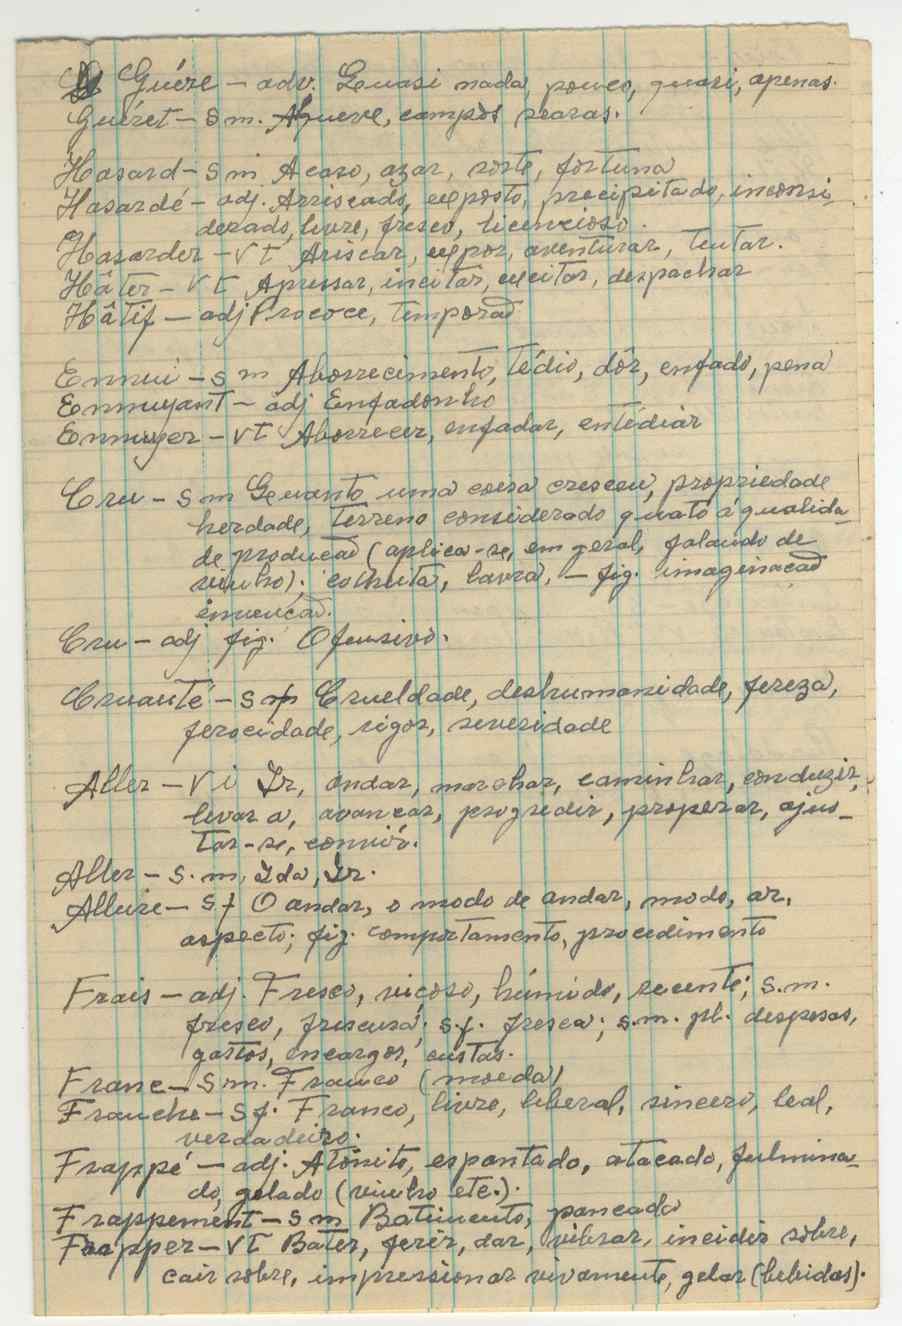 Guére - adv. Quasi nada, pouco, quasi, apenas.
Guéret - s m. Alqueve, campos searas.
Hasard - s m Acaso, azar, sorte, fortuna
Hasardé - adj. Arriscado, exposto, precipitado, inconsi-
derado, livre, fresco, licencioso.
Hasarder - v t Ariscar, expor, aventurar, tentar.
Hâter - v t Apressar, incitar, excitar, despachar
Hâtif - adj Prococe, temporão
Ennui - s m Aborrecimento, tédio, dôr, enfado, pena
Ennuyant - adj Enfadonho
Ennuyer - v t Aborrecer, enfadar, entediar
Cru - s m Quanto uma coisa cresceu, propriedade
herdade, terreno considerado quato á qualida-
de producão (aplica-se, em geral, falando de
vinho). colheita, lavra, - fig. imaginacão
invencão.
Cru - adj fig. Ofensivo.
Cruauté - s f Crueldade, deshumanidade, fereza,
ferocidade, rigor, severidade
Aller - v i Ir, andar, marchar, caminhar, conduzir,
levar a, avancar, progredir, properar, ajus-
tar-se, convir.
Aller - s. m, Ida, Ir.
Allure - s f O andar, o modo de andar, modo, ar,
aspecto; fig. comportamento, procedimento
Frais - adj. Fresco, viçoso, húmido, recente; s. m.
fresco, frescura; s. f. fresca; s. m. pl. despesas,
gastos, encargos, custas.
Franc - s m. Franco (moeda)
Franche - s f. Franco, livre, liberal, sincero, leal,
verdadeiro.
Frappé - adj. Atónito, espantado, atacado, fulmina-
do, gelado (vinho etc.).
Frappement - s m Batimento, pancada
Frapper - v t Bater, ferir, dar, vibrar, incidir sôbre,
cair sôbre, impressionar vivamente, gelar (bebidas).